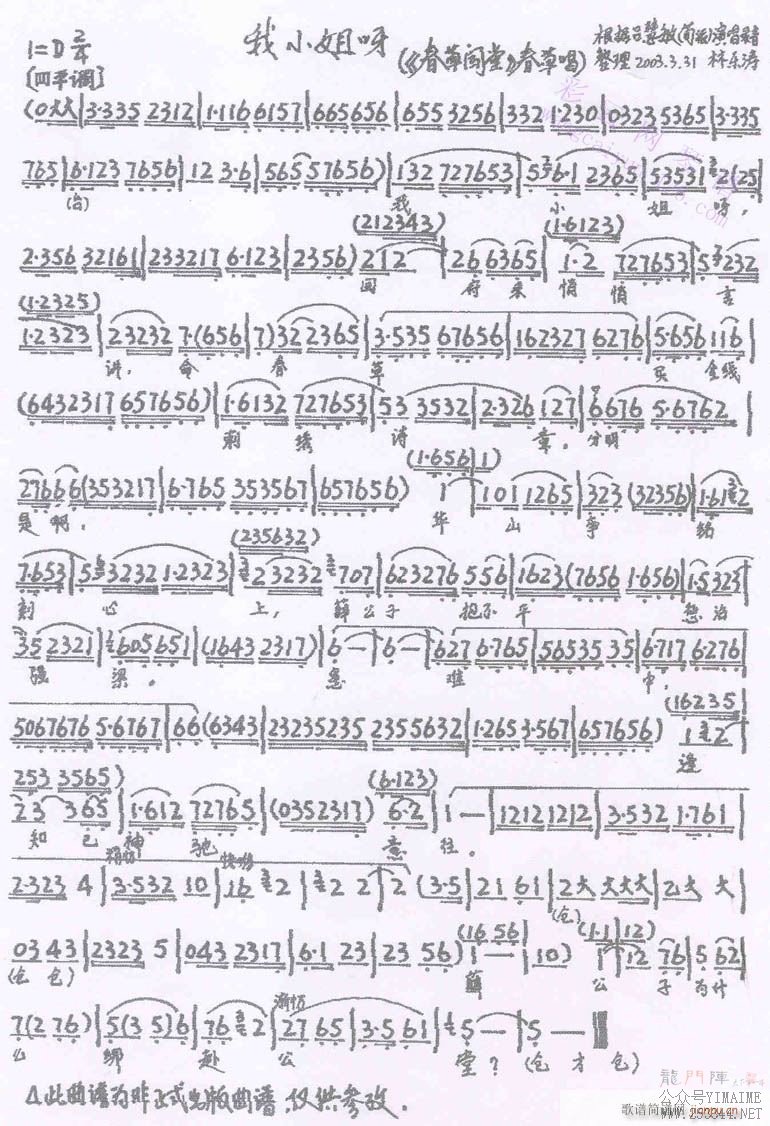 我小姐呀
1=D 2/4
(《春草闯堂》春草唱)
根据吕慧敏(荀派)演唱录音
[四平调]
整理2003.3.31 林乐涛
(0大大|3·335 2312|1·116 6157|665656|655 3256|332 1·230|0323 5365|3·335
765|6·123 7656|12 3·6|565 57656)|132 727653|5 6·1 2365|53531 2(25|
(台) 我 小 姐 呀,
(212343) (1·6123)
2·356 32161|233217 6·123|2356) 212|26 6365|1·2 727653|5 3232
回 府 来 悄 悄 言
(1·2325)
1·2323|23232 7·(656|7)32 2365|3·535 67656|162327 6276|5·656 116|
讲, 命 春 草 买 金线
(6432317 657656)|1·6132 727653|53 3532|2·326 127|6676 5·6762|
刺 绣 诗 章, 分明
(1·656|1)
27666(353217|6·765 353567|657656) 1|101 1265|323 (32356)|1·612
是啊, 华 山 争 铭
(235632)
7·653|5 3232 1·2323|2 3232 707|623276 556|1623(7656 1·656)|1·5323|
刻 心 上, 薛公子 抱不平 惩治
35 2321|605651|(1643 2317)|6—|6—|627 6·765|56535 35|6·717 6·276|
强 梁, 急 难 中,
(16235|
5067676 5·6767|66(6343|23235235 2355632|1·265 3·567|657656) 1 2|
逢
253 3565) (6·123)
23 365|1·612 72765|(0352317) 6·2|1—|1212 1212|3·532 1·761|
知 己 神 驰 意 往。
稍慢 快场
2·323 4|3·532 10|16 2|2 2|2 (3·5|21 61|2大 大大大|乙大 大|
(仓)
(16 56) (1·1|12)
03 43|2323 5|043 2317|6·1 23|23 56) 1—|10) 1|12 76|5 62|
(仓 仓) 薛 公 子 为什
渐慢
7(2 76)|5(3 5)6|76 2|27 65|3·5 61|5—|5—‖
么 绑 赴 公 堂? (仓 才 仓)
△此曲谱为非正式出版曲谱,仅供参改.
龍門陣
公众号YIMAIME
歌谱简谱网 jianpu.cn